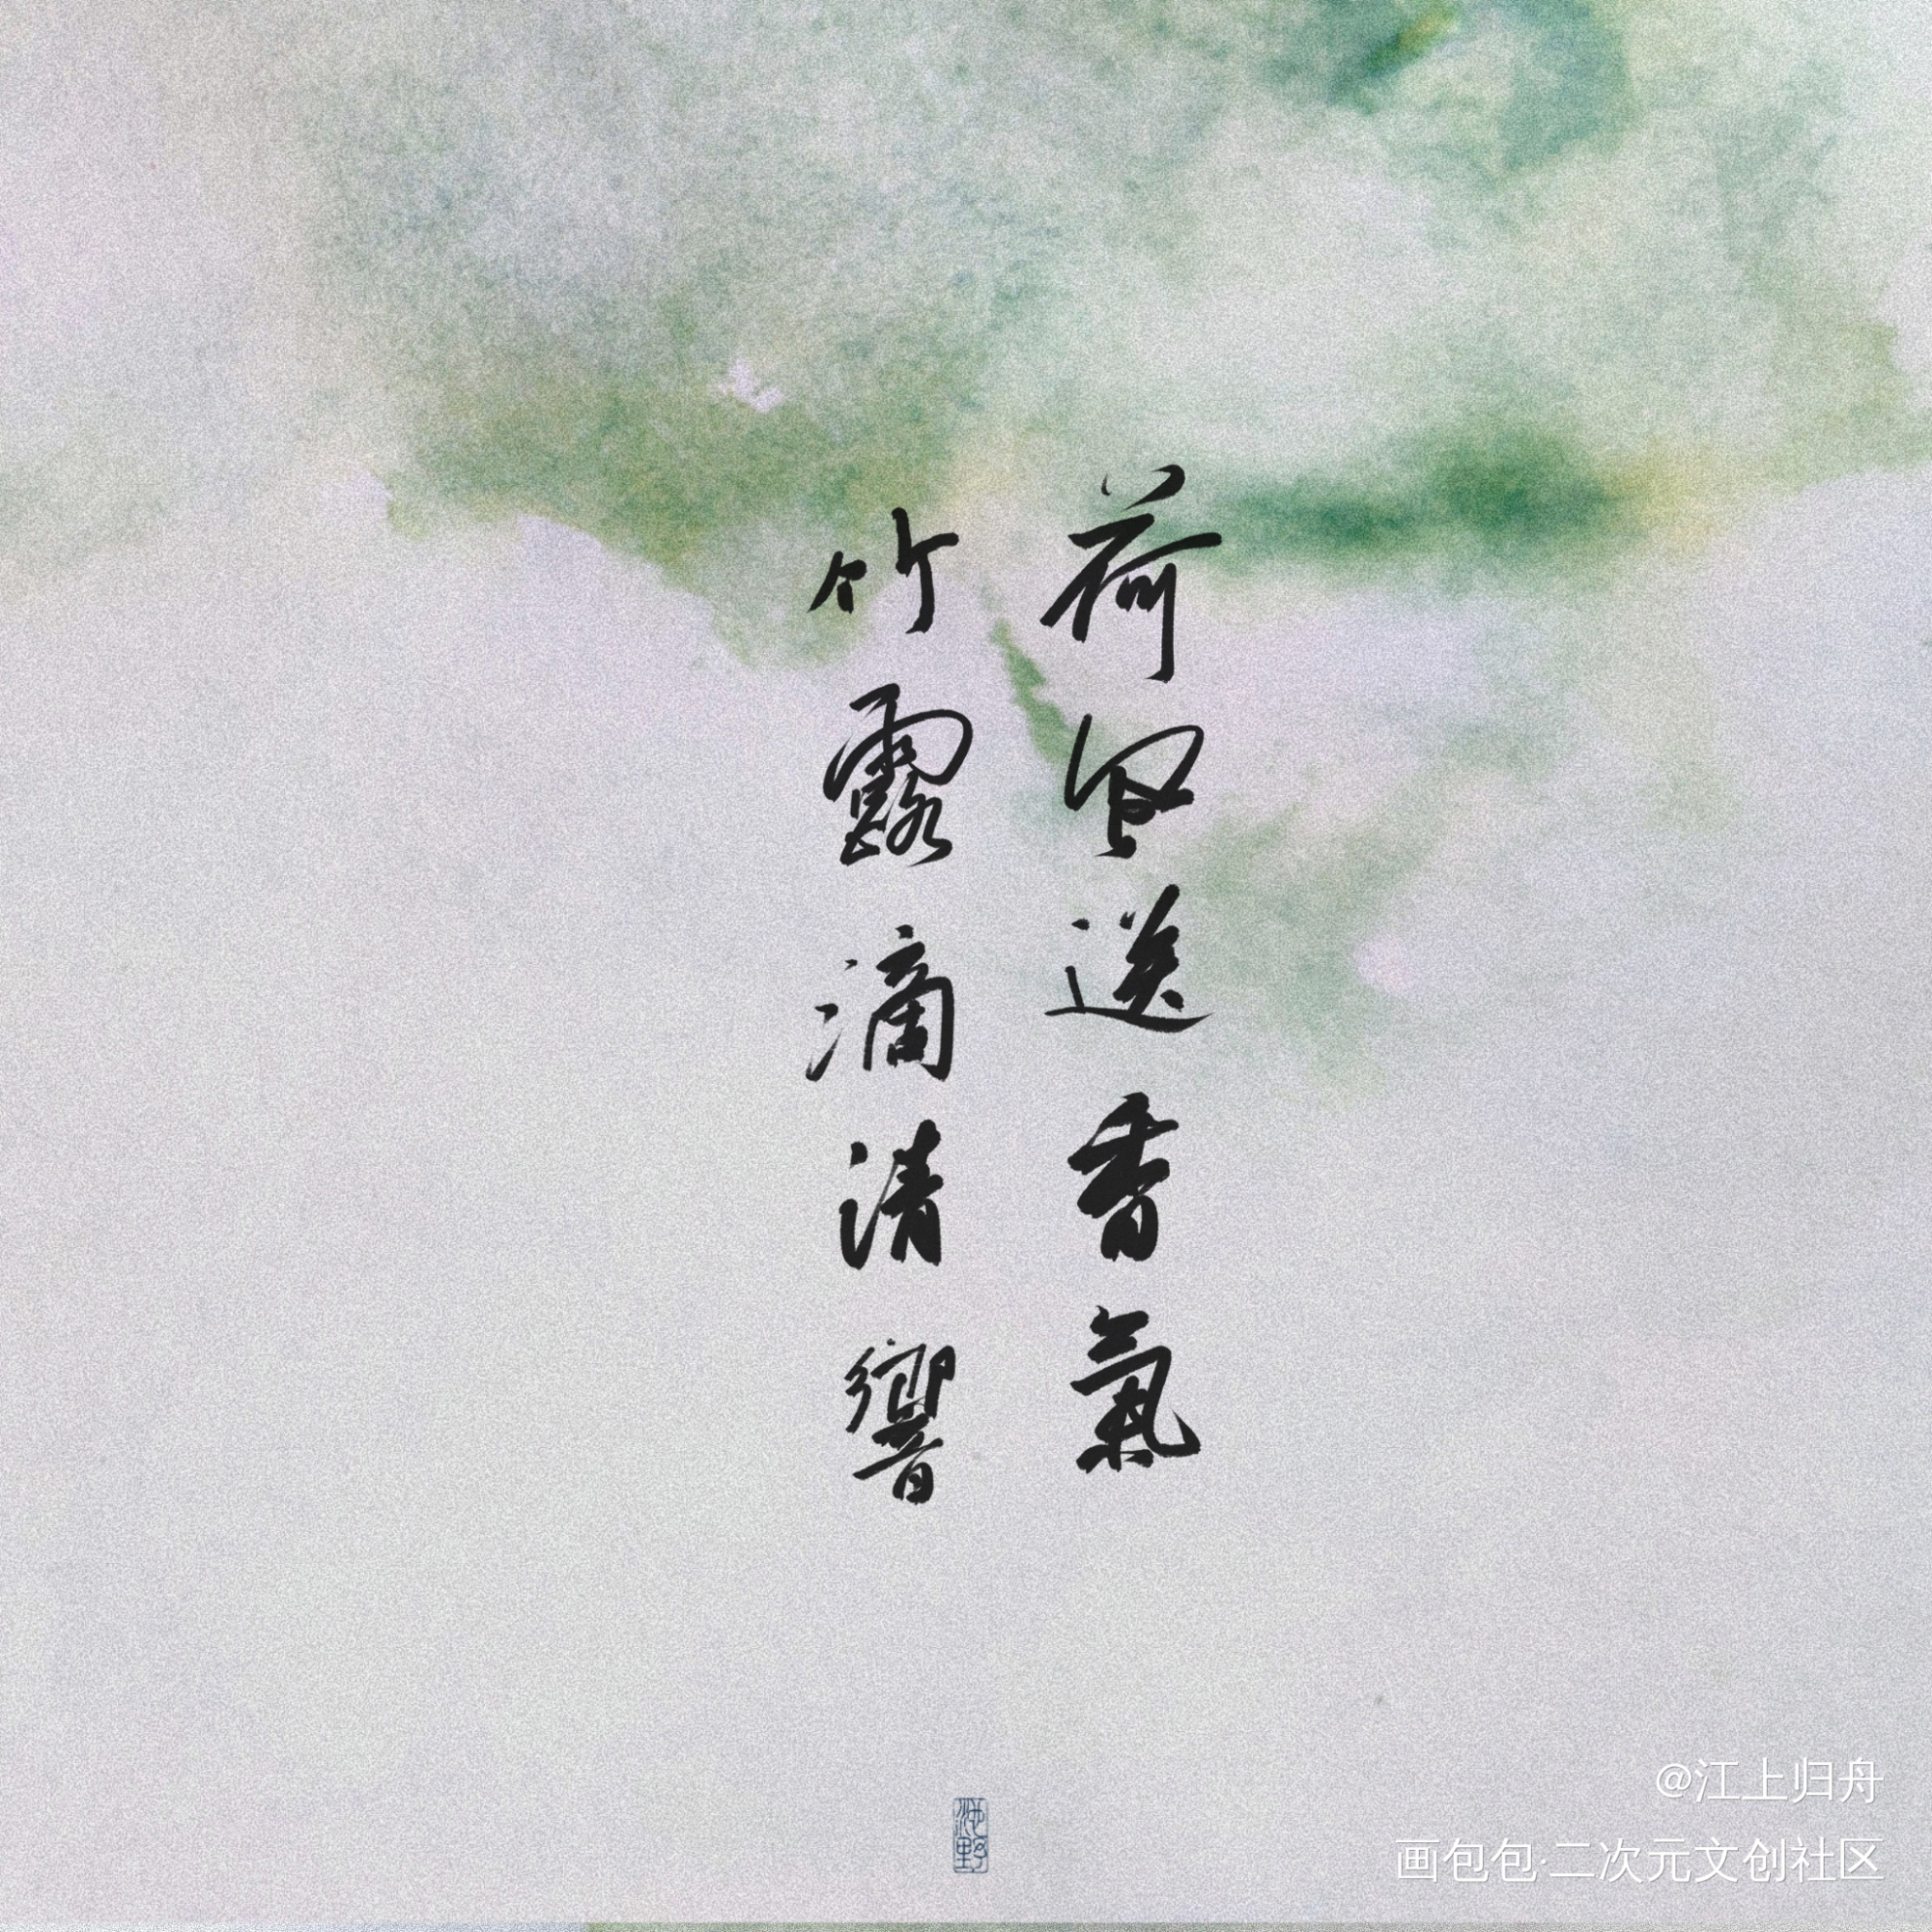 荷風送香氣
竹露滴清響
海野
@江上归舟
画包包·二次元文创社区